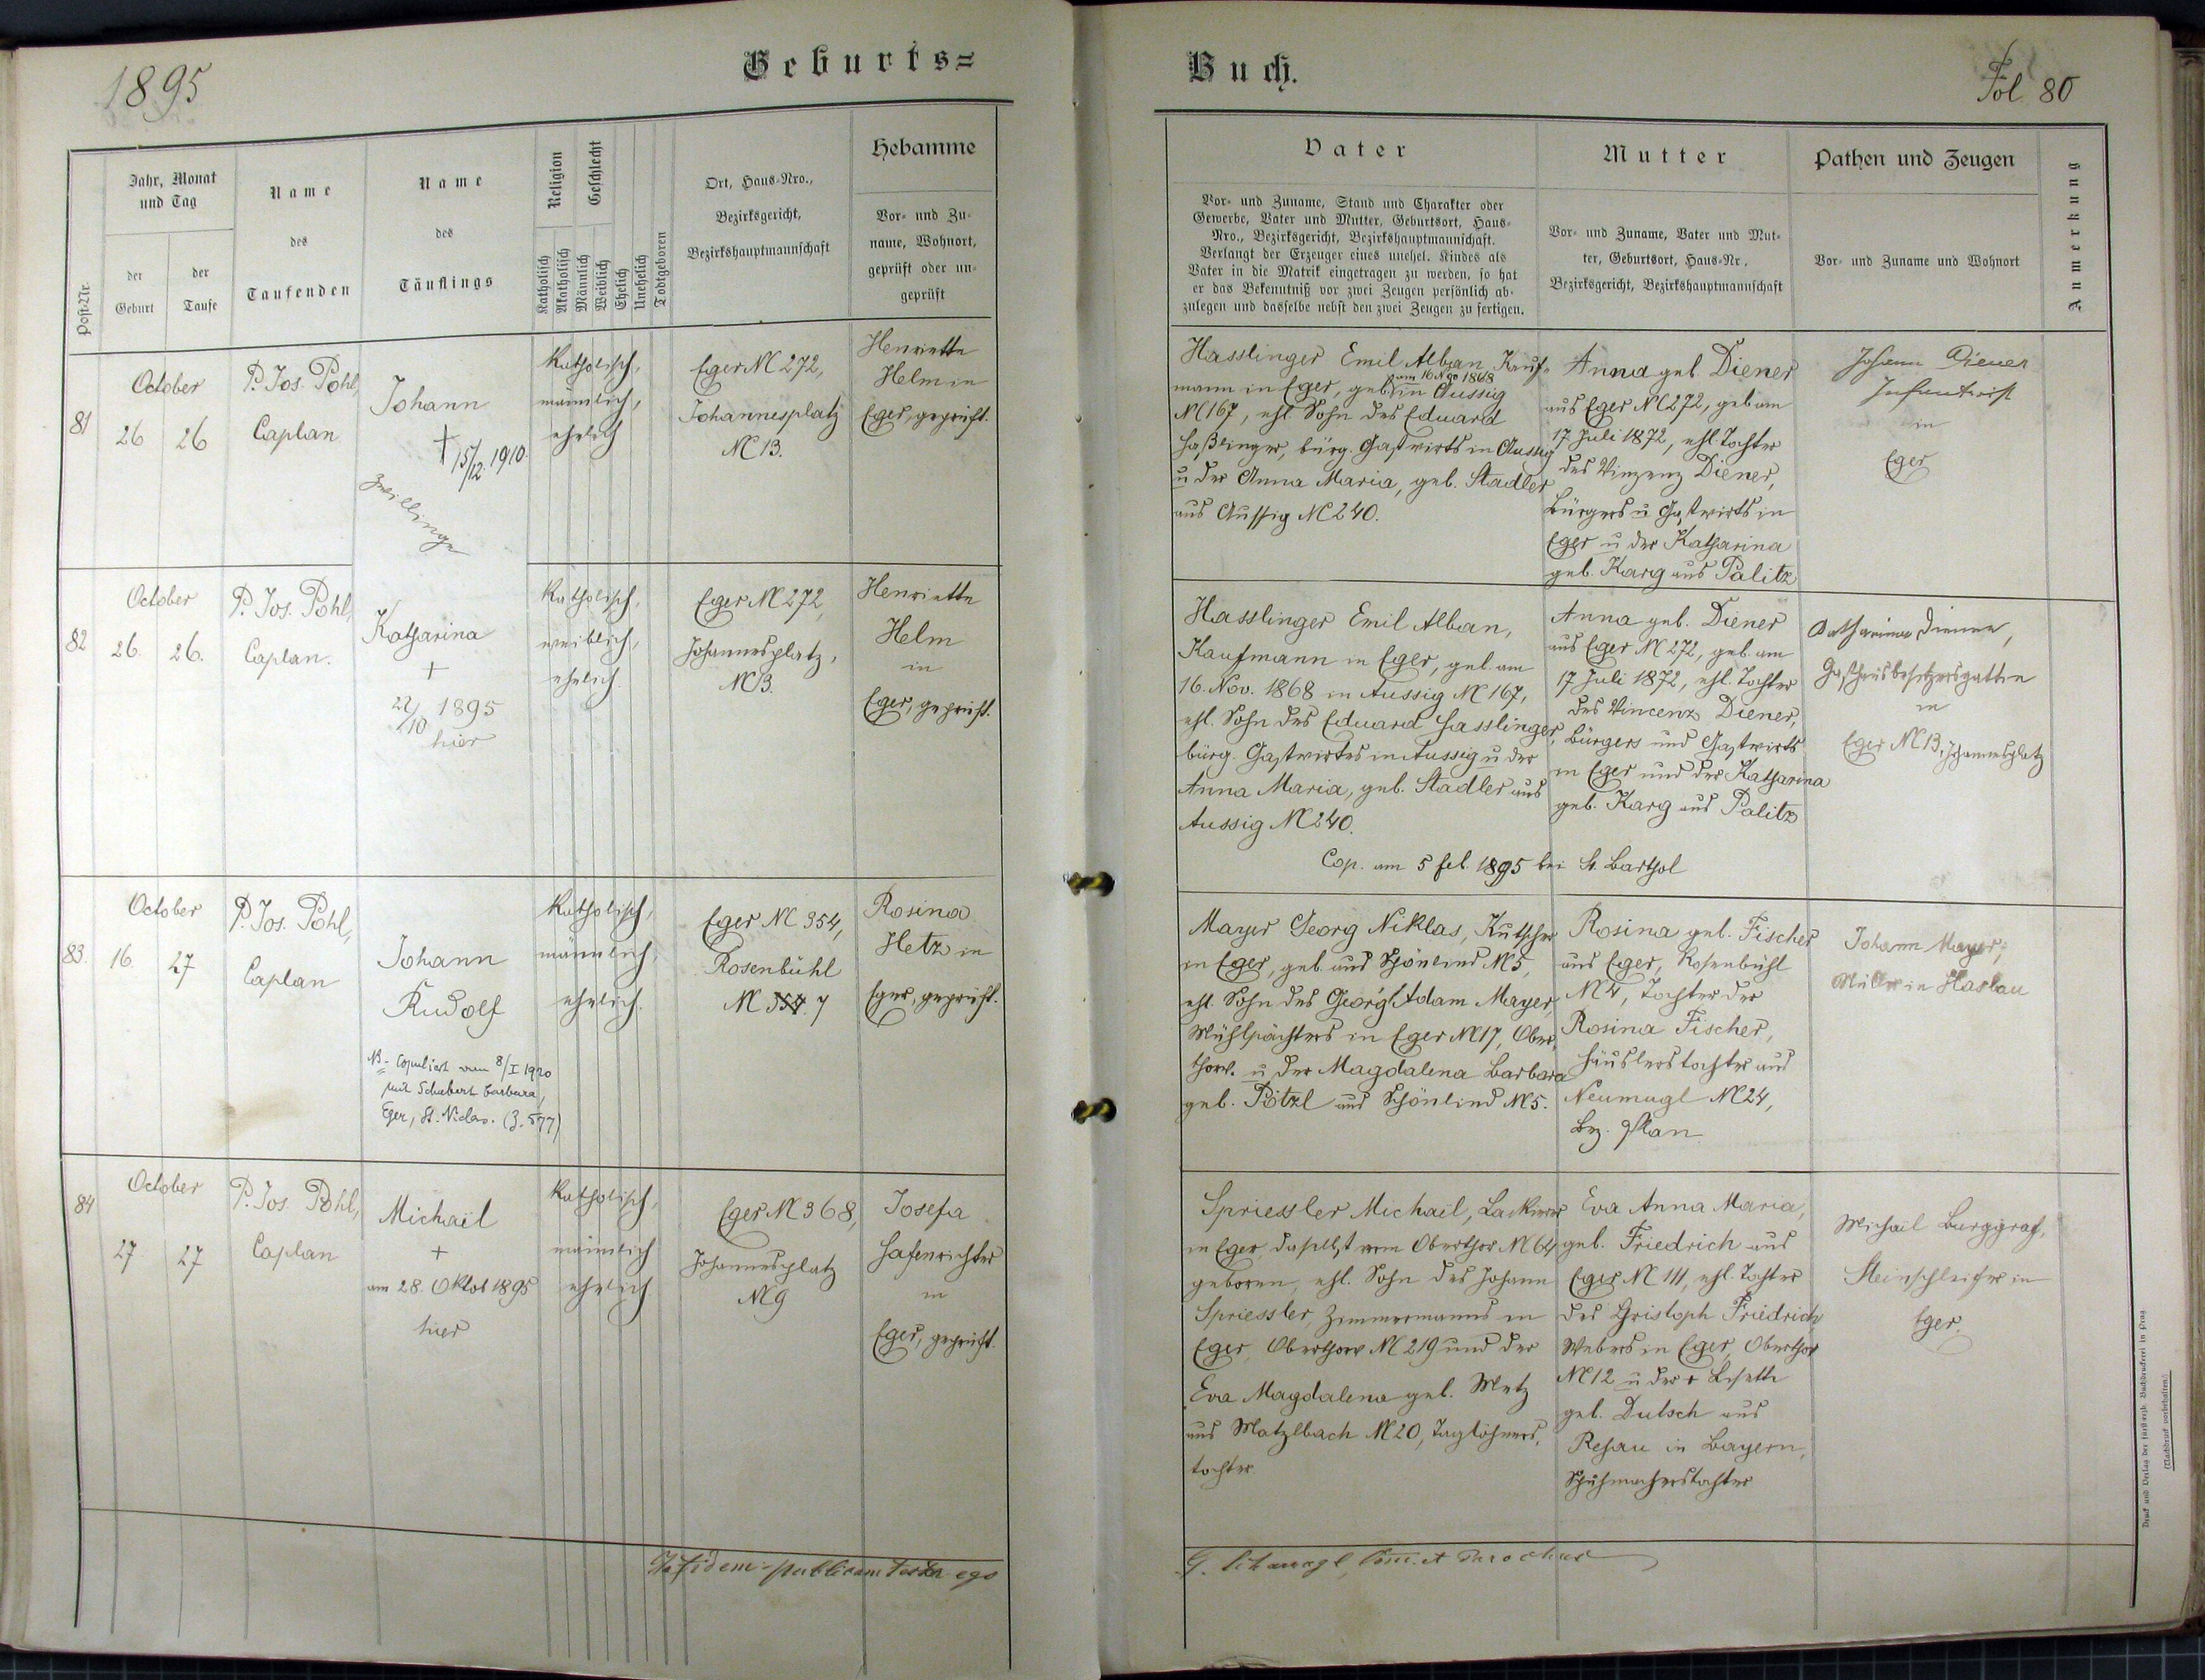 1895
Geburts=
Post-Nr.
Jahr, Monat
und Tag
der
Geburt
der
Taufe
Name
des
Taufenden
Name
des
Täuflings
Religion
Geschlecht
Katholisch
Akatholisch
Männlich
Weiblich
Ehelich
Unehelich
Todtgeboren
Ort, Haus-Nro.,
Bezirksgericht,
Bezirkshauptmannschaft
Hebamme
Vor- und Zu-
name, Wohnort,
geprüft oder un-
geprüft
81
October
26 26
P. Jos. Pohl,
Caplan
Johann
† 15/12. 1910
Zwillinge
Katholisch,
männlich,
ehelich
Eger N 272,
Johannesplatz
N 13.
Henriette
Helm in
Eger, geprüft.
82
October
26. 26.
P. Jos. Pohl,
Caplan.
Katharina
+
27/10 1895
hier
Katholisch,
weiblich,
ehelich.
Eger N 272,
Johannesplatz,
N 13.
Henriette
Helm
in
Eger, geprüft.
83.
October
16. 27
P. Jos. Pohl,
Caplan
Johann
Rudolf
NB. Copuliert am 8/I 1920
mit Schubert Barbara,
Eger, St. Niclas. (Z. 577)
Katholisch,
männlich,
ehelich.
Eger N 354,
Rosenbühl
N 354. 7
Rosina
Hetz in
Eger, geprüft.
84
October
27 27
P. Jos. Pohl,
Caplan
Michaël
+
am 28. Oktob 1895
hier
Katholisch,
männlich
ehelich
Eger N 368,
Johannesplatz
N 9
Josefa
Hafenrichter
in
Eger, geprüft.
fidem publicam testor ego
Buch.
Fol. 80
Vater
Vor- und Zuname, Stand und Charakter oder
Gewerbe, Vater und Mutter, Geburtsort, Haus-
Nro., Bezirksgericht, Bezirkshauptmannschaft.
Verlangt der Erzeuger eines unehel. Kindes als
Vater in die Matrik eingetragen zu werden, so hat
er das Bekenntniß vor zwei Zeugen persönlich ab-
zulegen und dasselbe nebst den zwei Zeugen zu fertigen.
Mutter
Vor- und Zuname, Vater und Mut-
ter, Geburtsort, Haus-Nr.,
Bezirksgericht, Bezirkshauptmannschaft
Pathen und Zeugen
Vor- und Zuname und Wohnort
Anmerkung
Hasslinger Emil Alban, Kauf-
am 16 Nov 1868
mann in Eger, geb. in Aussig
N 167, ehl. Sohn des Eduard
Haßlinger, bürg. Gastwirts in Aussig
u der Anna Maria, geb. Stadler
aus Aussig N 240.
Anna geb. Diener
aus Eger N 272, geb am
17 Juli 1872, ehl. Tochter
des Vinzenz Diener,
Bürgers u Gastwirts in
Eger u der Katharina
geb. Karg aus Palitz
Johann Diener
Infanterist
in
Eger
Hasslinger Emil Alban,
Kaufmann in Eger, geb. am
16. Nov. 1868 in Aussig N 167,
ehl. Sohn des Eduard Hasslinger,
bürg. Gastwirtes in Aussig u der
Anna Maria, geb. Stadler aus
Aussig N 240.
Anna geb. Diener
aus Eger N 272, geb. am
17 Juli 1872, ehl. Tochter
des Vincenz Diener,
Bürgers und Gastwirts
in Eger und der Katharina
geb. Karg aus Palitz
Katharina Diener,
Gasthausbesitzersgattin
in
Eger N 13, Johannesplatz
Cop. am 5 feb. 1895 bei St. Barthol
Mayer Georg Niklas, Kutscher
in Eger, geb. aus Schönlind N 5,
ehl. Sohn des Georg Adam Mayer,
Mühlpächters in Eger N 17, Ober-
thor. u der Magdalena Barbara
geb. Pötzl aus Schönlind N 5.
Rosina geb. Fischer
aus Eger, Rosenbühl
N 4, Tochter der
Rosina Fischer,
Häuslerstochter aus
Neumugl N 24,
Bez. Plan
Johann Mayer,
Müller in Haslau
Spriessler Michaël, Lackierer
in Eger, daselbst vom Oberthor N 64
geboren, ehl. Sohn des Johann
Spriessler, Zimmermanns in
Eger, Oberthor N 219 und der
Eva Magdalena geb. Metz
aus Matzlbach N 20, Taglöhners,
tochter
Eva Anna Maria,
geb. Friedrich aus
Eger N 111, ehl. Tochter
des Christoph Friedrich
Webers in Eger, Oberthor
N 12 u der + Lisette
geb. Dutsch aus
Rehau in Bayern,
Schuhmacherstochter
Michael Burggraf,
Steinschleifer in
Eger.
Druck und Verlag der fürsterzb. Buchdruckerei in Prag
(Nachdruck vorbehalten.)